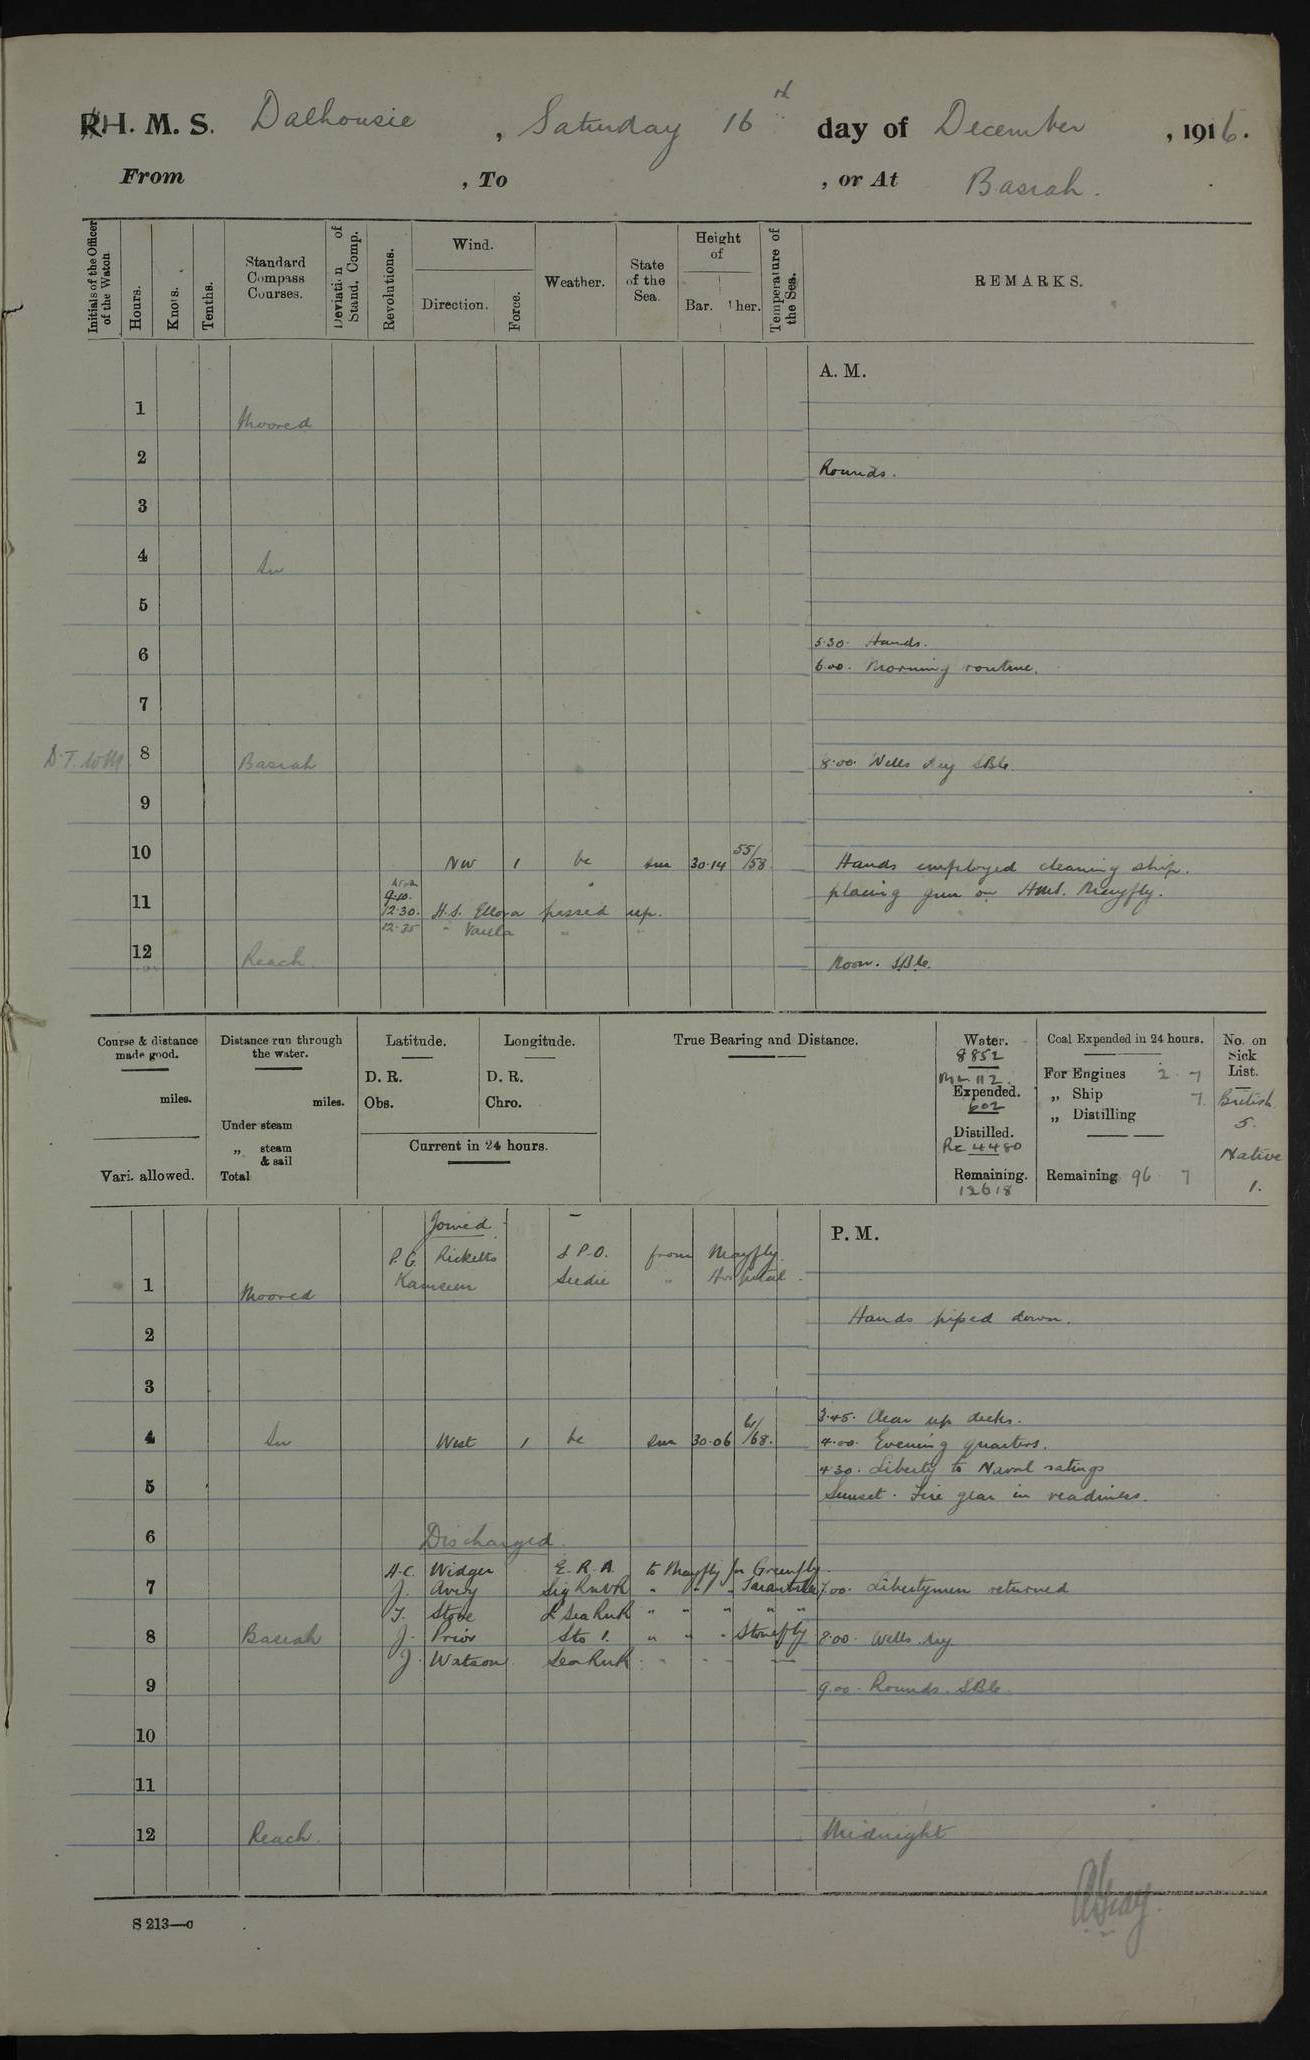 H. M. S. Dalhousie, Saturday 16th day of December, 1916.
From , To , or At Basrah.
Initials of the Officer of the Watch
Hours.
Knots.
Tenths.
Standard Compass Courses.
Deviation of Stand. Comp.
Revolutions.
Wind.
Direction.
Force.
Weather.
State of the Sea.
Height of
Bar. Ther.
Temperature of the Sea.
REMARKS.
A. M.
1 Moored
2 Rounds.
3
4 In
5
5.30. Hands.
6 6.00. Morning routine.
7
8 Basrah 8.00. Wells dry SBG.
9
10 NW 1 bc sm 30.14 55/58 Hands employed cleaning ship.
11 placing gun on HMS. Mayfly.
12.30. H.S. Ellora passed up.
12.35 " Varela " "
12 Reach Noon. SBG.
Course & distance made good.
miles.
Vari. allowed.
Distance run through the water.
miles.
Under steam
„ steam & sail
Total
Latitude.
D. R.
Obs.
Longitude.
D. R.
Chro.
Current in 24 hours.
True Bearing and Distance.
Water.
8852
112.
Expended.
602
Distilled.
Rc 4480
Remaining.
12618
Coal Expended in 24 hours.
For Engines 2 7
„ Ship 7
„ Distilling
Remaining 96 7
No. on Sick List.
British
5.
Native
1.
Joined
P. M.
P.G. Ricketts S P.O. from Mayfly.
1 Moored Kamseen Seedie " Hospital.
Hands piped down.
2
3
3.45. Clear up decks.
4 In West 1 bc sm 30.06 61/68. 4.00. Evening quarters.
4.30. Liberty to Naval ratings
5 Sunset. Fire gear in readiness.
6 Discharged
H.C. Widger E.R.A. to Mayfly for Greenfly.
7 J. Avery Sig RNVR " " " Tarantula 7.00. Libertymen returned
T. Stove L Sea RNR " " " " "
8 Basrah J. Prior Sto 1. " " " Stonefly 8.00. Wells dry
J. Watson Sea RNR
9 9.00. Rounds. SBG.
10
11
12 Reach. Midnight
S 213—c